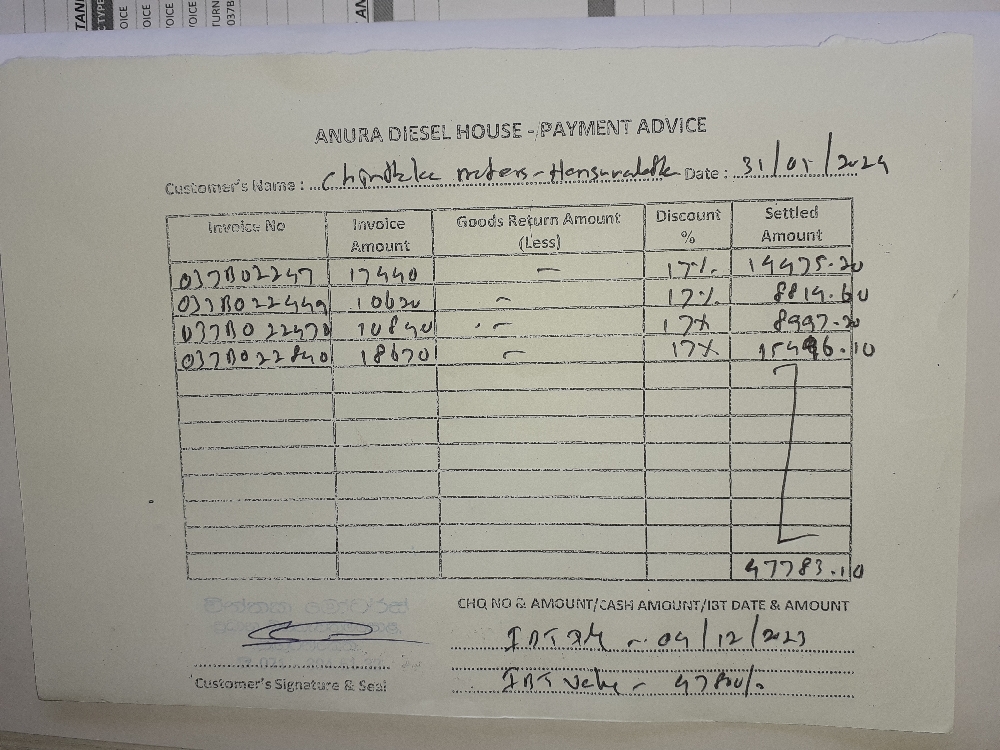 ANURA DIESEL HOUSE - PAYMENT ADVICE
Customer's Name : Date : 31/01/2024
Invoice No Invoice Amount Goods Return Amount (Less) Discount % Settled Amount
037B02247 17440 - 17% 14475.20
037B022449 10620 - 17% 8814.60
037B022470 10840 - 17% 8997.20
037B022840 18670 - 17% 15496.10
47783.10
CHQ NO & AMOUNT/CASH AMOUNT/IBT DATE & AMOUNT
IBT - 04/12/2023
Customer's Signature & Seal
IBT - 47800/.